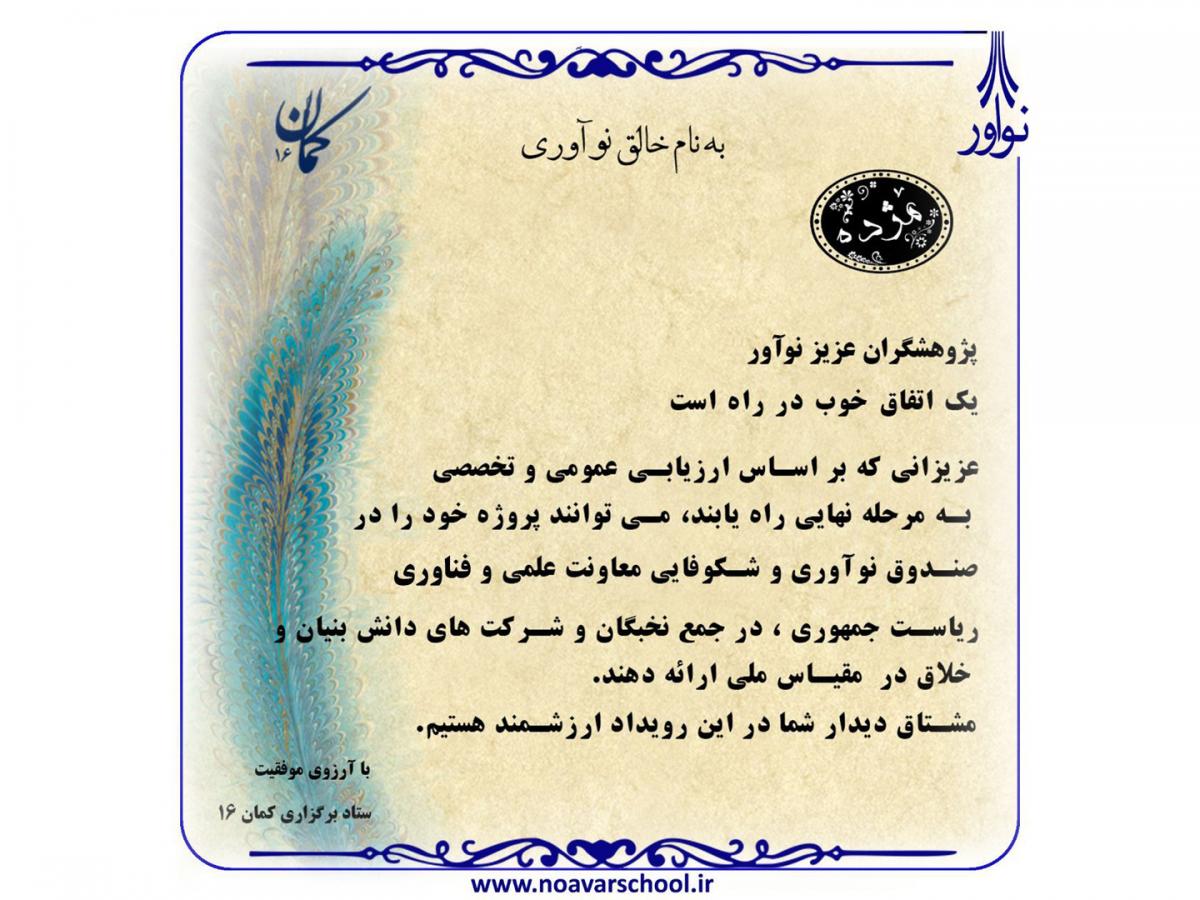 نوآور
کمان
۱۶
به نام خالق نوآوری
مژده
پژوهشگران عزیز نوآور
یک اتفاق خوب در راه است
عزیزانی که بر اساس ارزیابی عمومی و تخصصی
به مرحله نهایی راه یابند، می توانند پروژه خود را در
صندوق نوآوری و شکوفایی معاونت علمی و فناوری
ریاست جمهوری ، در جمع نخبگان و شرکت های دانش بنیان و
خلاق در مقیاس ملی ارائه دهند.
مشتاق دیدار شما در این رویداد ارزشمند هستیم.
با آرزوی موفقیت
ستاد برگزاری کمان ۱۶
www.noavarschool.ir